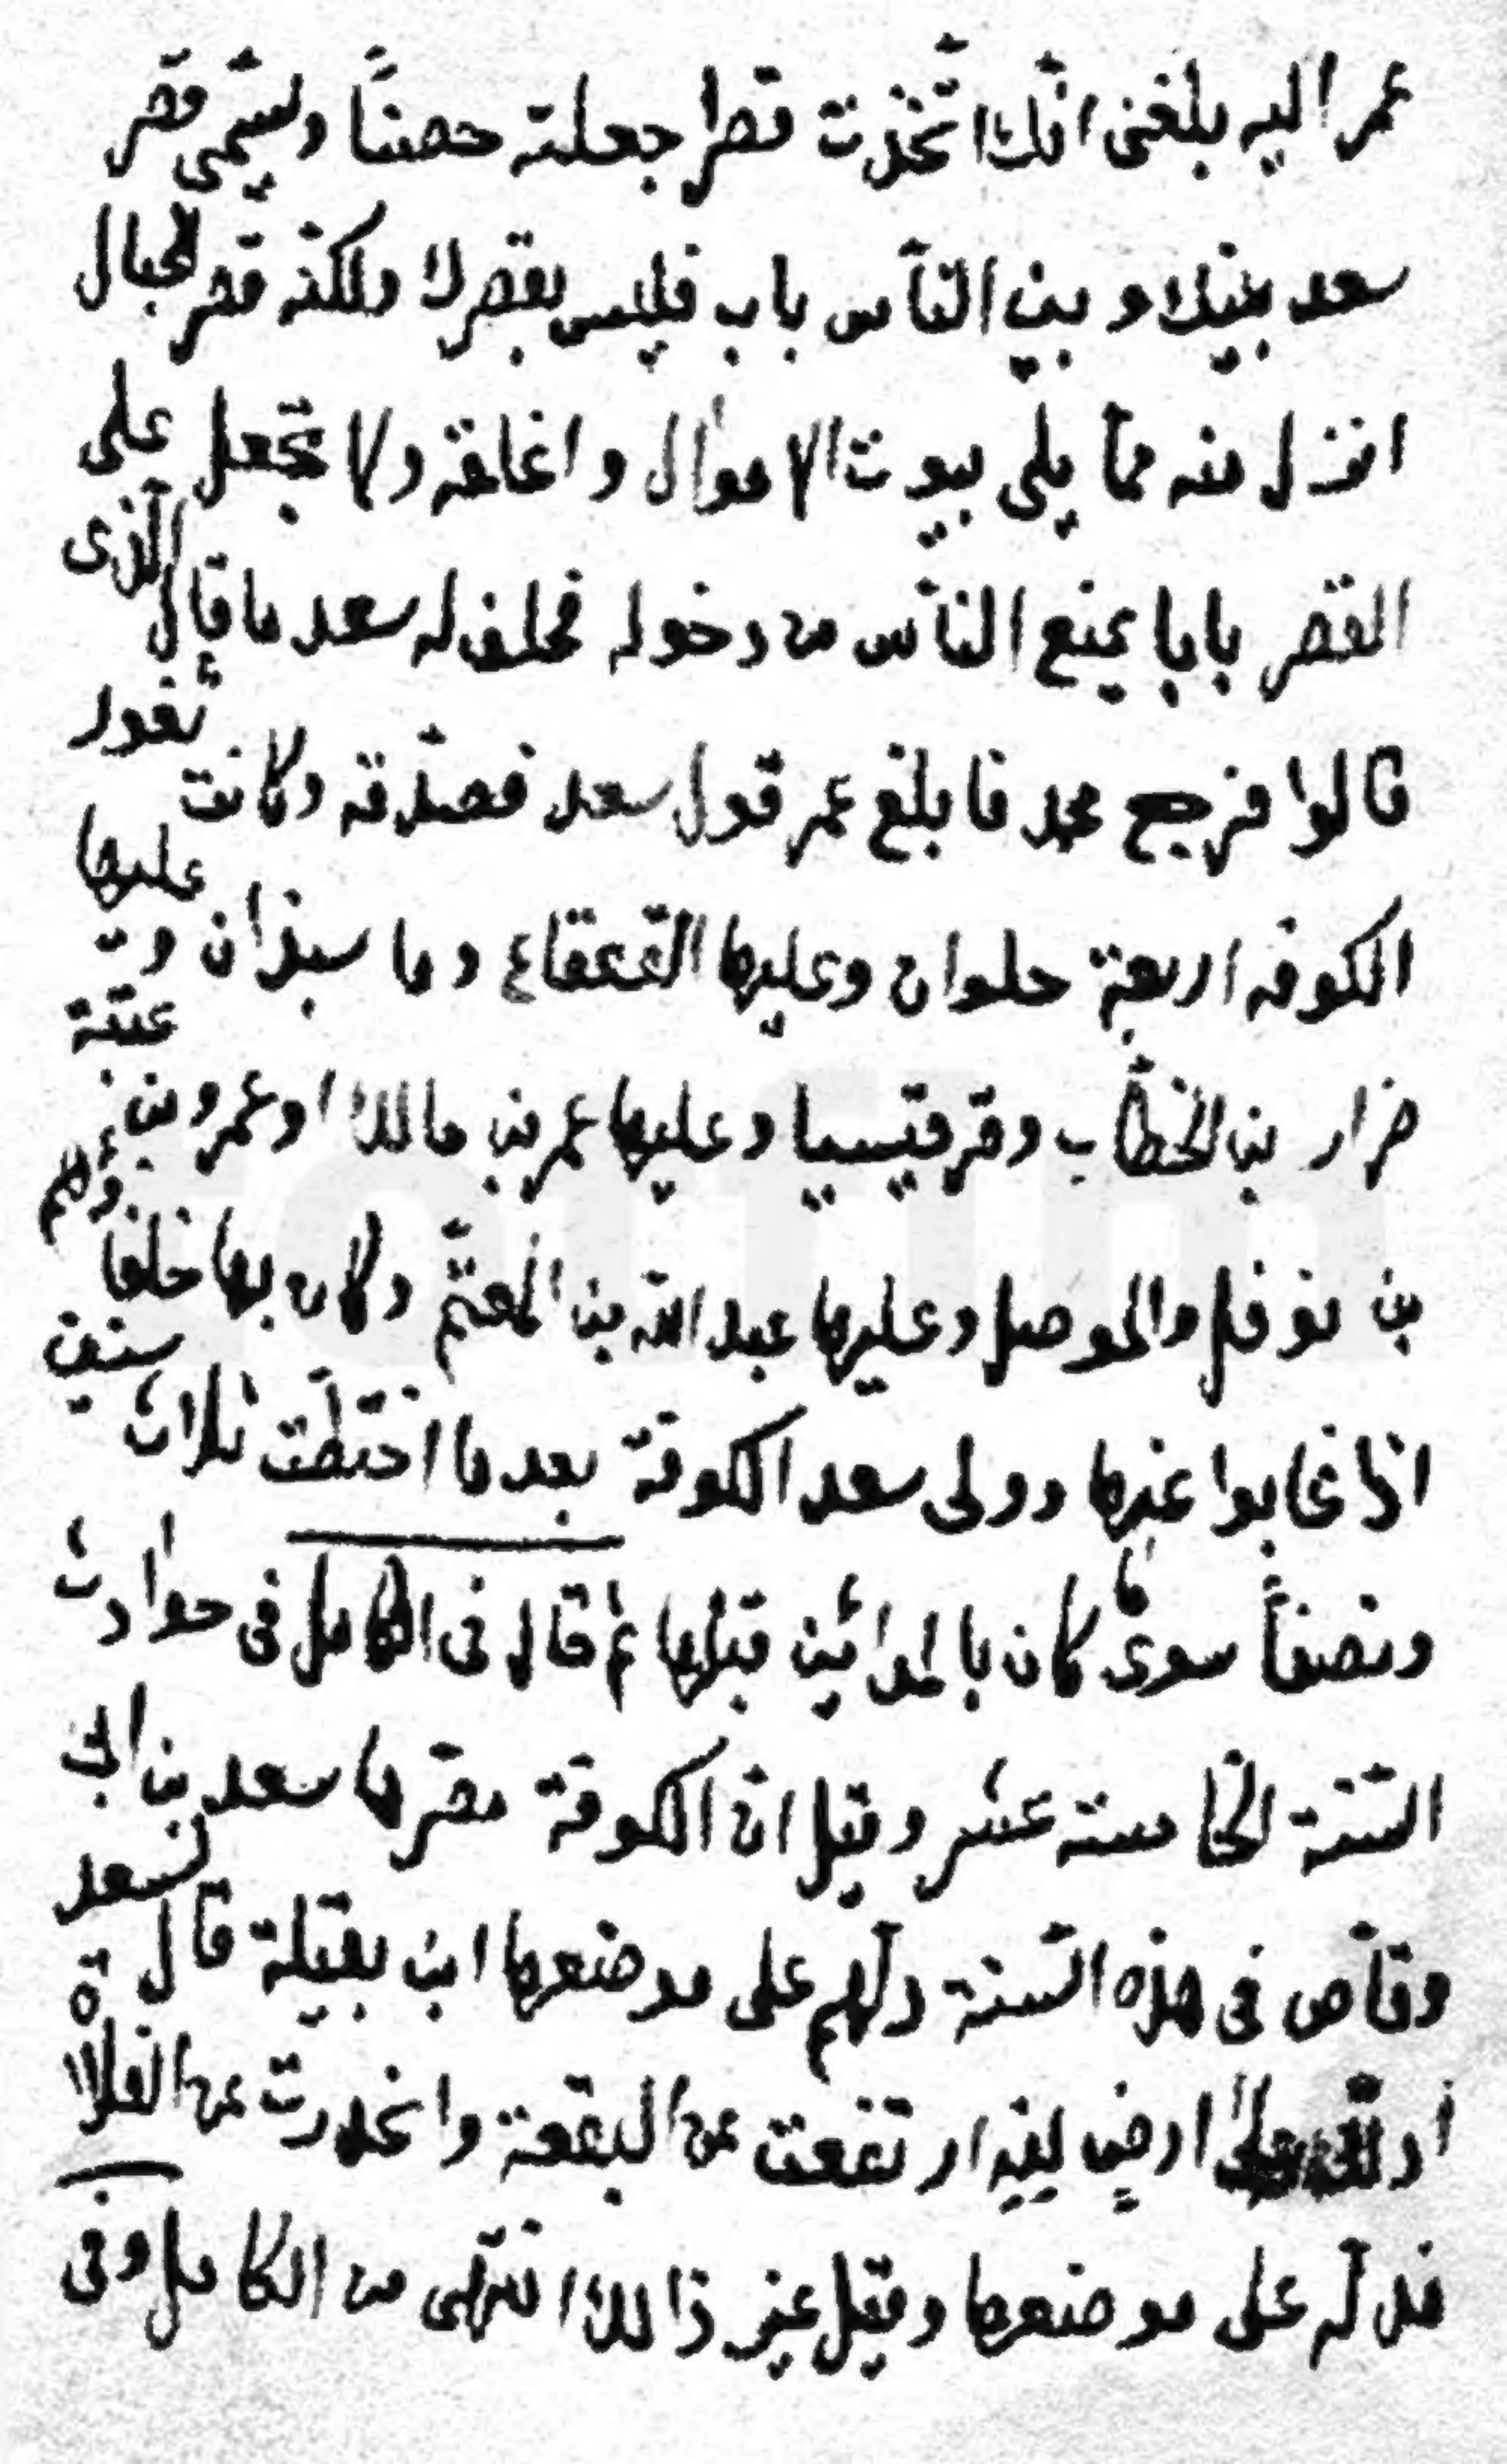 عمر اليه بلغنى انّك اتّخذت قصرا جعلته حصنًا ويسمّى قصر
سعد بينك وبين النّاس باب فليس بقصرك ولكنه قصر الخبال
انزل منه ممّا يلى بيوت الاموال واغلقه ولا تجعل على
القصر بابا يمنع النّاس من دخوله فحلف له سعد ما قال الّذى
قالوا فرجع محمد فابلغ عمر قول سعد فصدّقه وكانت ثغور
الكوفه اربعة حلوان وعليها القعقاع وماسبذان وعليها
ضرار بن الخطّاب وقرقيسيا وعليها عمر بن مالك او عمرو بن عتبة
بن نوفل والموصل وعليها عبد الله بن المعتمّ وكان بها خلفاؤهم
اذا غابوا عنها وولى سعد الكوفة بعد ما اختطّت ثلاث سنين
ونصفاً سوى ما كان بالمدائين قبلها ثم قال فى الكامل فى حوادث
السّنة الخامسة عشر وقيل انّ الكوفة مصّرها سعد بن ابى
وقّاص فى هذه السّنة دلّهم على موضعها ابن بقيلة قال لسعد
ادلّك على ارض لينه ارتفعت عن البقعة وانحدرت عن الفلاة
فدلّه على موضعها وقيل غير ذالك انتهى من الكامل وفى